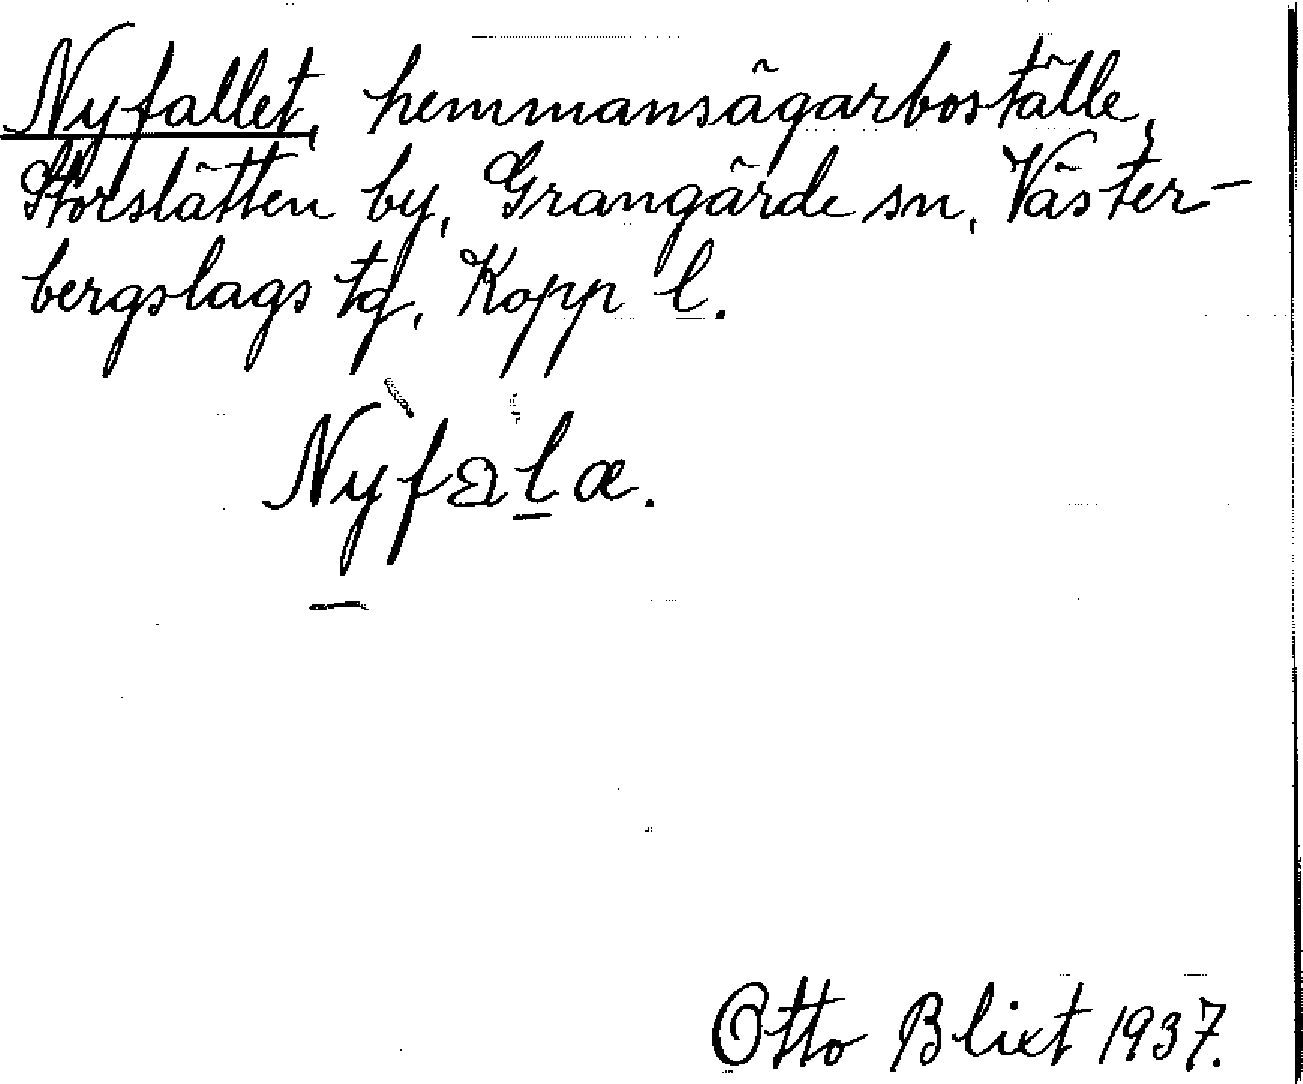 Nyfallet, hemmansägarboställe,
Storslätten by, Grangärde sn, Väster-
bergslags tg, Kopp l.
Nyfalæ.
Otto Blixt 1937.